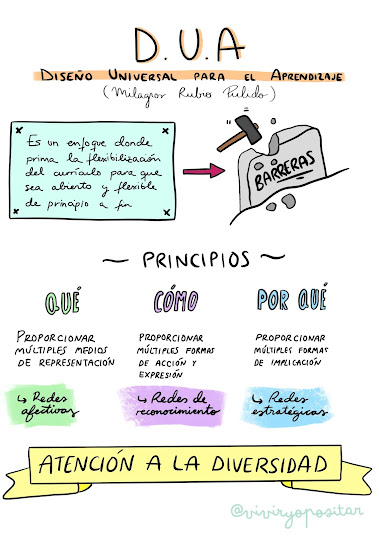 D.U.A
DISEÑO UNIVERSAL PARA EL APRENDIZAJE
(Milagros Rubio Pulido)
Es un enfoque donde
prima la flexibilización
del currículo para que
sea abierto y flexible
de principio a fin
BARRERAS
~ PRINCIPIOS ~
QUÉ
PROPORCIONAR
MÚLTIPLES MEDIOS
DE REPRESENTACIÓN
↳ Redes
afectivas
CÓMO
PROPORCIONAR
MÚLTIPLES FORMAS
DE ACCIÓN Y
EXPRESIÓN
↳ Redes de
reconocimiento
POR QUÉ
PROPORCIONAR
MÚLTIPLES FORMAS
DE IMPLICACIÓN
↳ Redes
estratégicas
ATENCIÓN A LA DIVERSIDAD
@viviryopositar